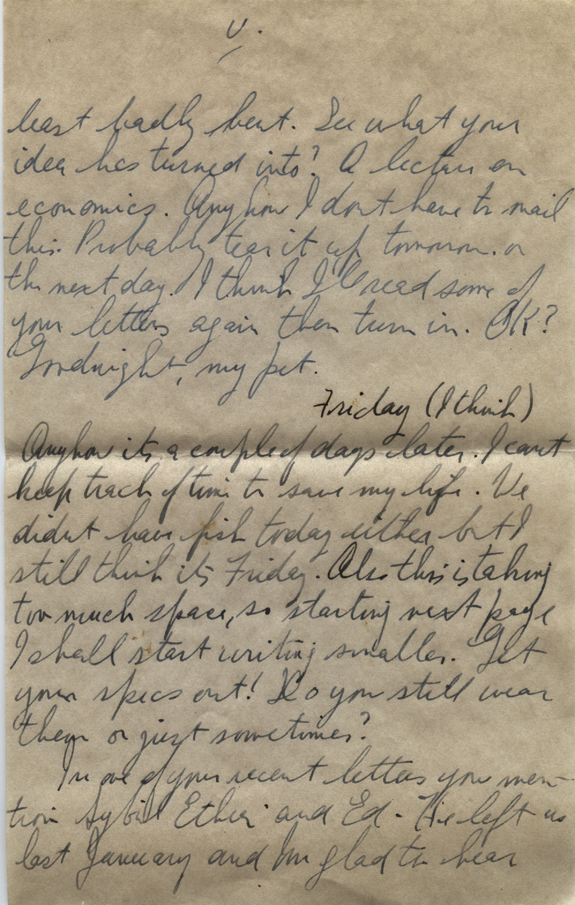 V.
least badly bent. See what your
idea has turned into? A lecture on
economics. Anyhow I dont have to mail
this. Probably tear it up tomorrow. or
the next day. I think I'll read some of
your letters again then turn in. OK?
Goodnight, my pet.
Friday (I think)
Anyhow its a couple of days later. I cant
keep track of time to save my life. We
didnt have fish today either but I
still think its Friday. Also this is taking
too much space, so starting next page
I shall start writing smaller. Get
your specs out! Do you still wear
them or just sometimes?
In one of your recent letters you men-
tion Sybil and Ed - He left us
last January and Im glad to hear